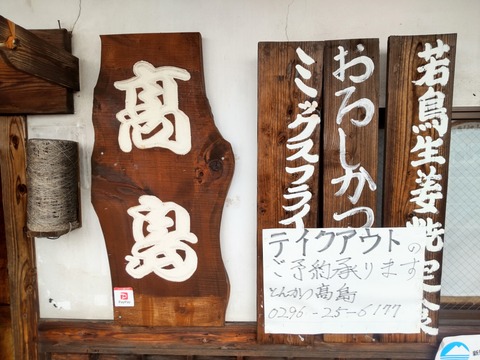 髙島
若鳥生姜焼定食
おろしかつ
ミックスフライ
テイクアウトの
ご予約承ります
とんかつ髙島
0296-25-6177
PayPay